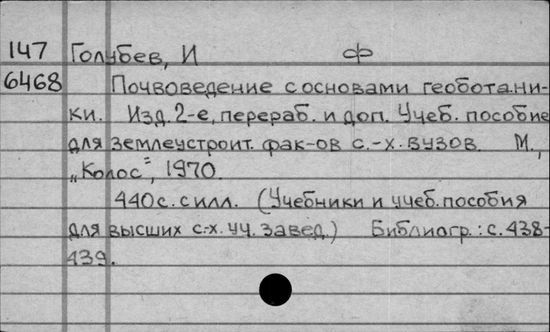 147 Голубев, И ф
6468 Почвоведение с основами геоботани-
ки. Изд. 2-е, перераб. и доп. Учеб. пособие
для землеустроит. фак-ов с.-х. вузов. М.,
„Колос", 1970.
440 с. с илл. (Учебники и учеб. пособия
для высших с.-х. уч. завед.) Библиогр.: с. 438-
439.